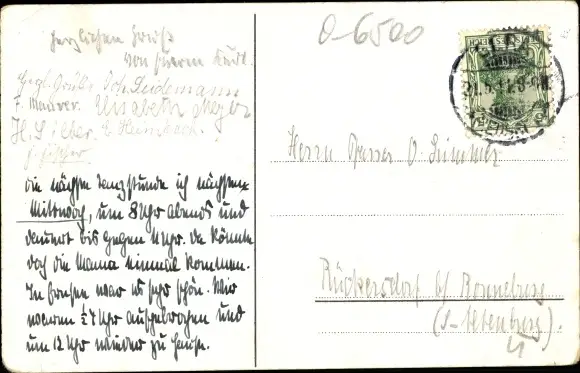 Herzlichen Gruß
von Eurem Kurt.
Herzl. Grüße Joh. Seidemann
F. Maurer. Elisabeth Meyer
H. Sieber. E. Heimbach.
Fischer
Die nächste Tanzstunde ist nächsten
Mittwoch, um 8 Uhr abends und
dauert bis gegen 11 Uhr. Da könnte
doch die Mama einmal kommen.
In war es sehr schön. Wir
waren ½7 Uhr aufgebrochen und
um 12 Uhr wieder zu Hause.
0-6500
GERA
21.5.11.
Herrn Pfarrer O. Simmer
Rückersdorf b/ Ronneberg
(S-Altenberg).